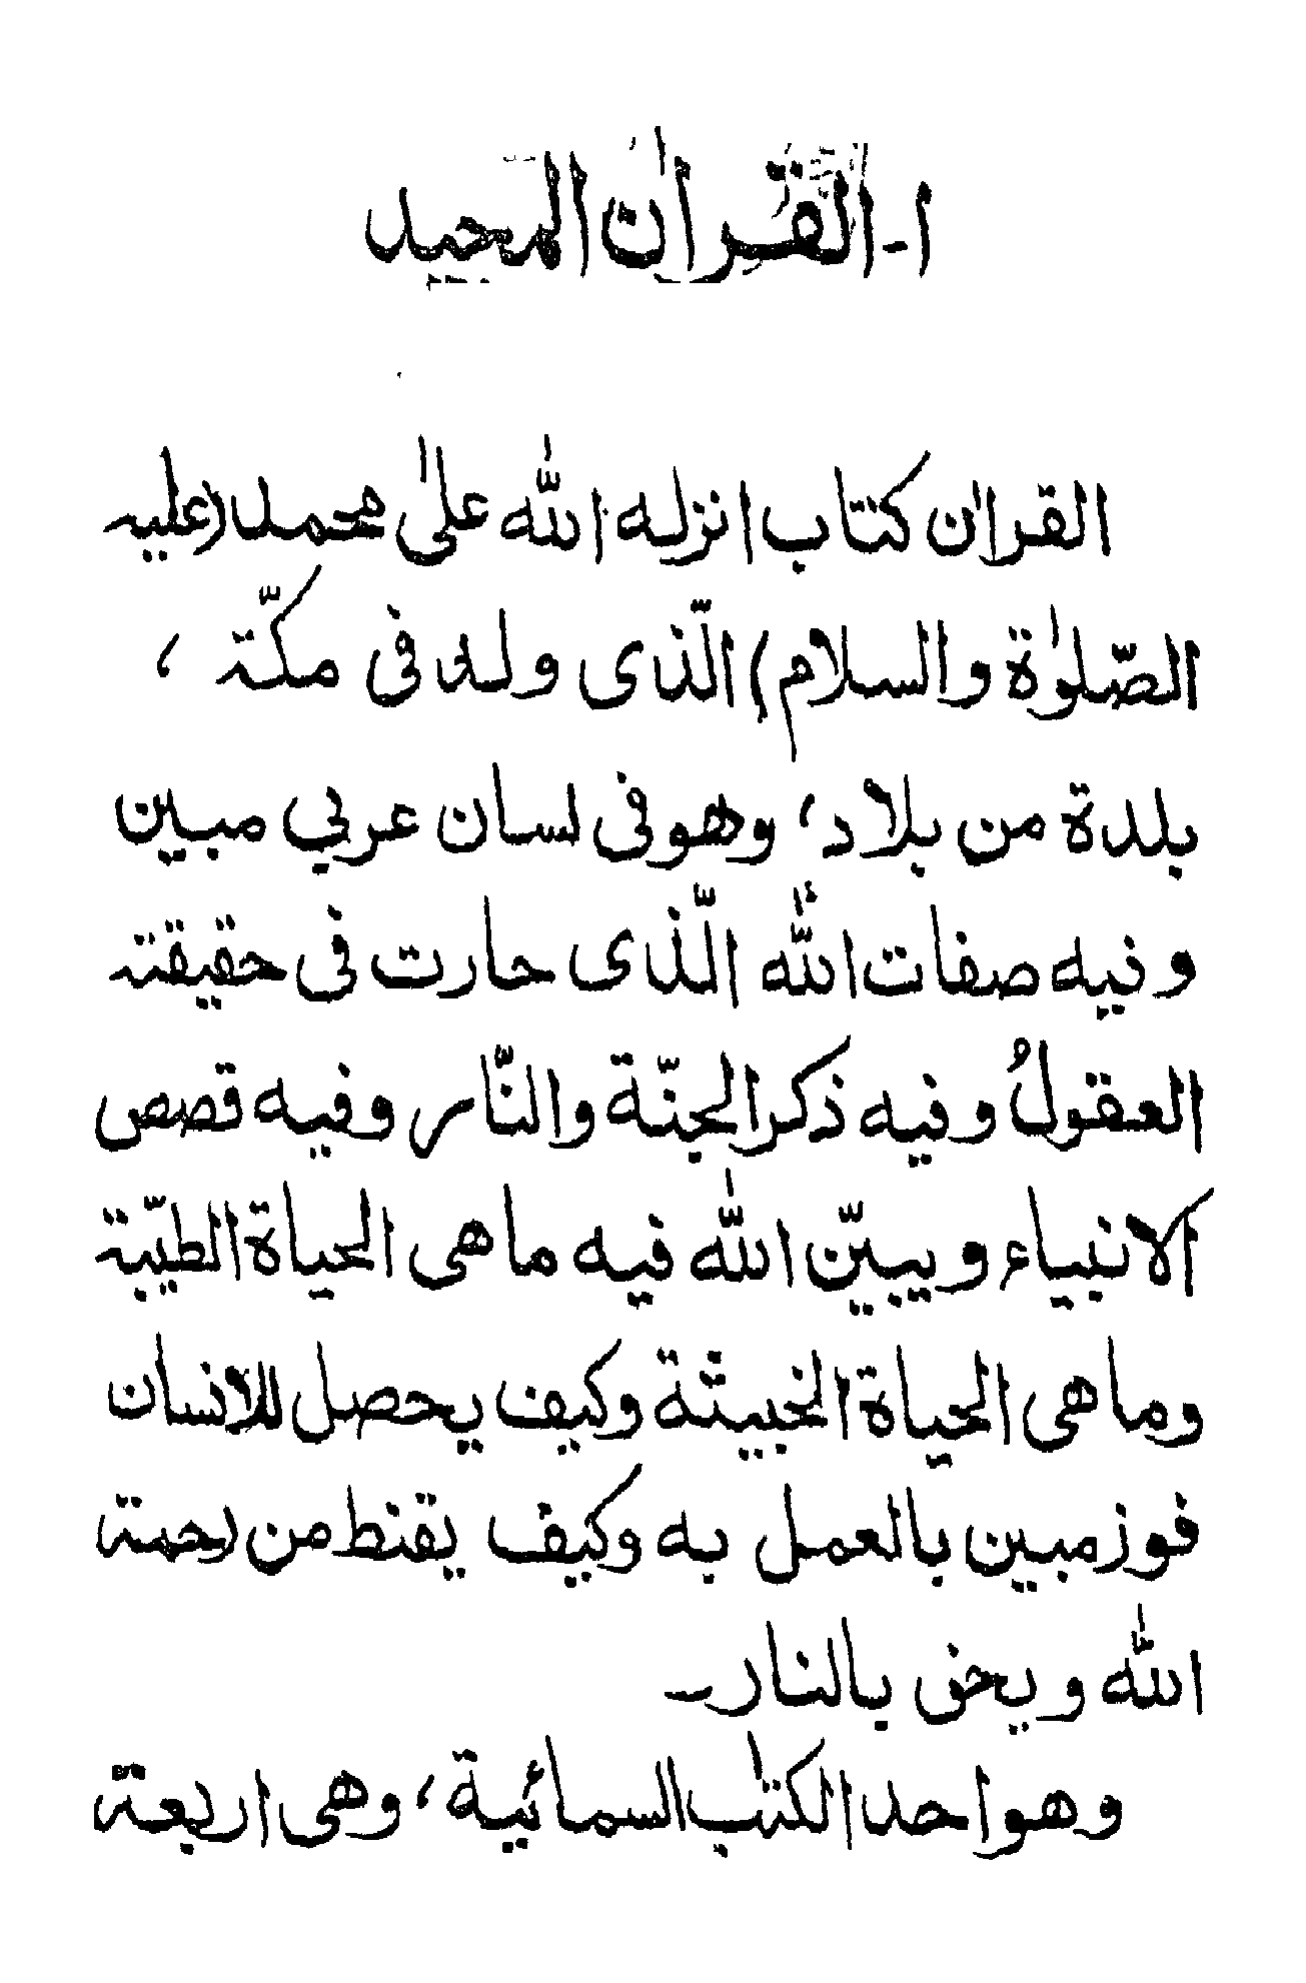 ١ـ القُراٰن المجيد
القراٰن كتاب انزله اللّٰه علىٰ محمد (عليه
الصّلوٰة والسلام) الّذى ولد فى مكّة ،
بلدة من بلاد، وهو فى لسان عربي مبين
و فيه صفات اللّٰه الّذى حارت فى حقيقته
العقولُ و فيه ذكر الجنّة والنّار وفيه قصص
الانبياء و يبيّن اللّٰه فيه ما هى الحياة الطيّبة
وما هى الحياة الخبيثة وكيف يحصل للانسان
فوز مبين بالعمل به وكيف يقنط من رحمة
اللّٰه و يحق بالنار ــ
وهو احد الكتٰب السمائية، وهى اربعة